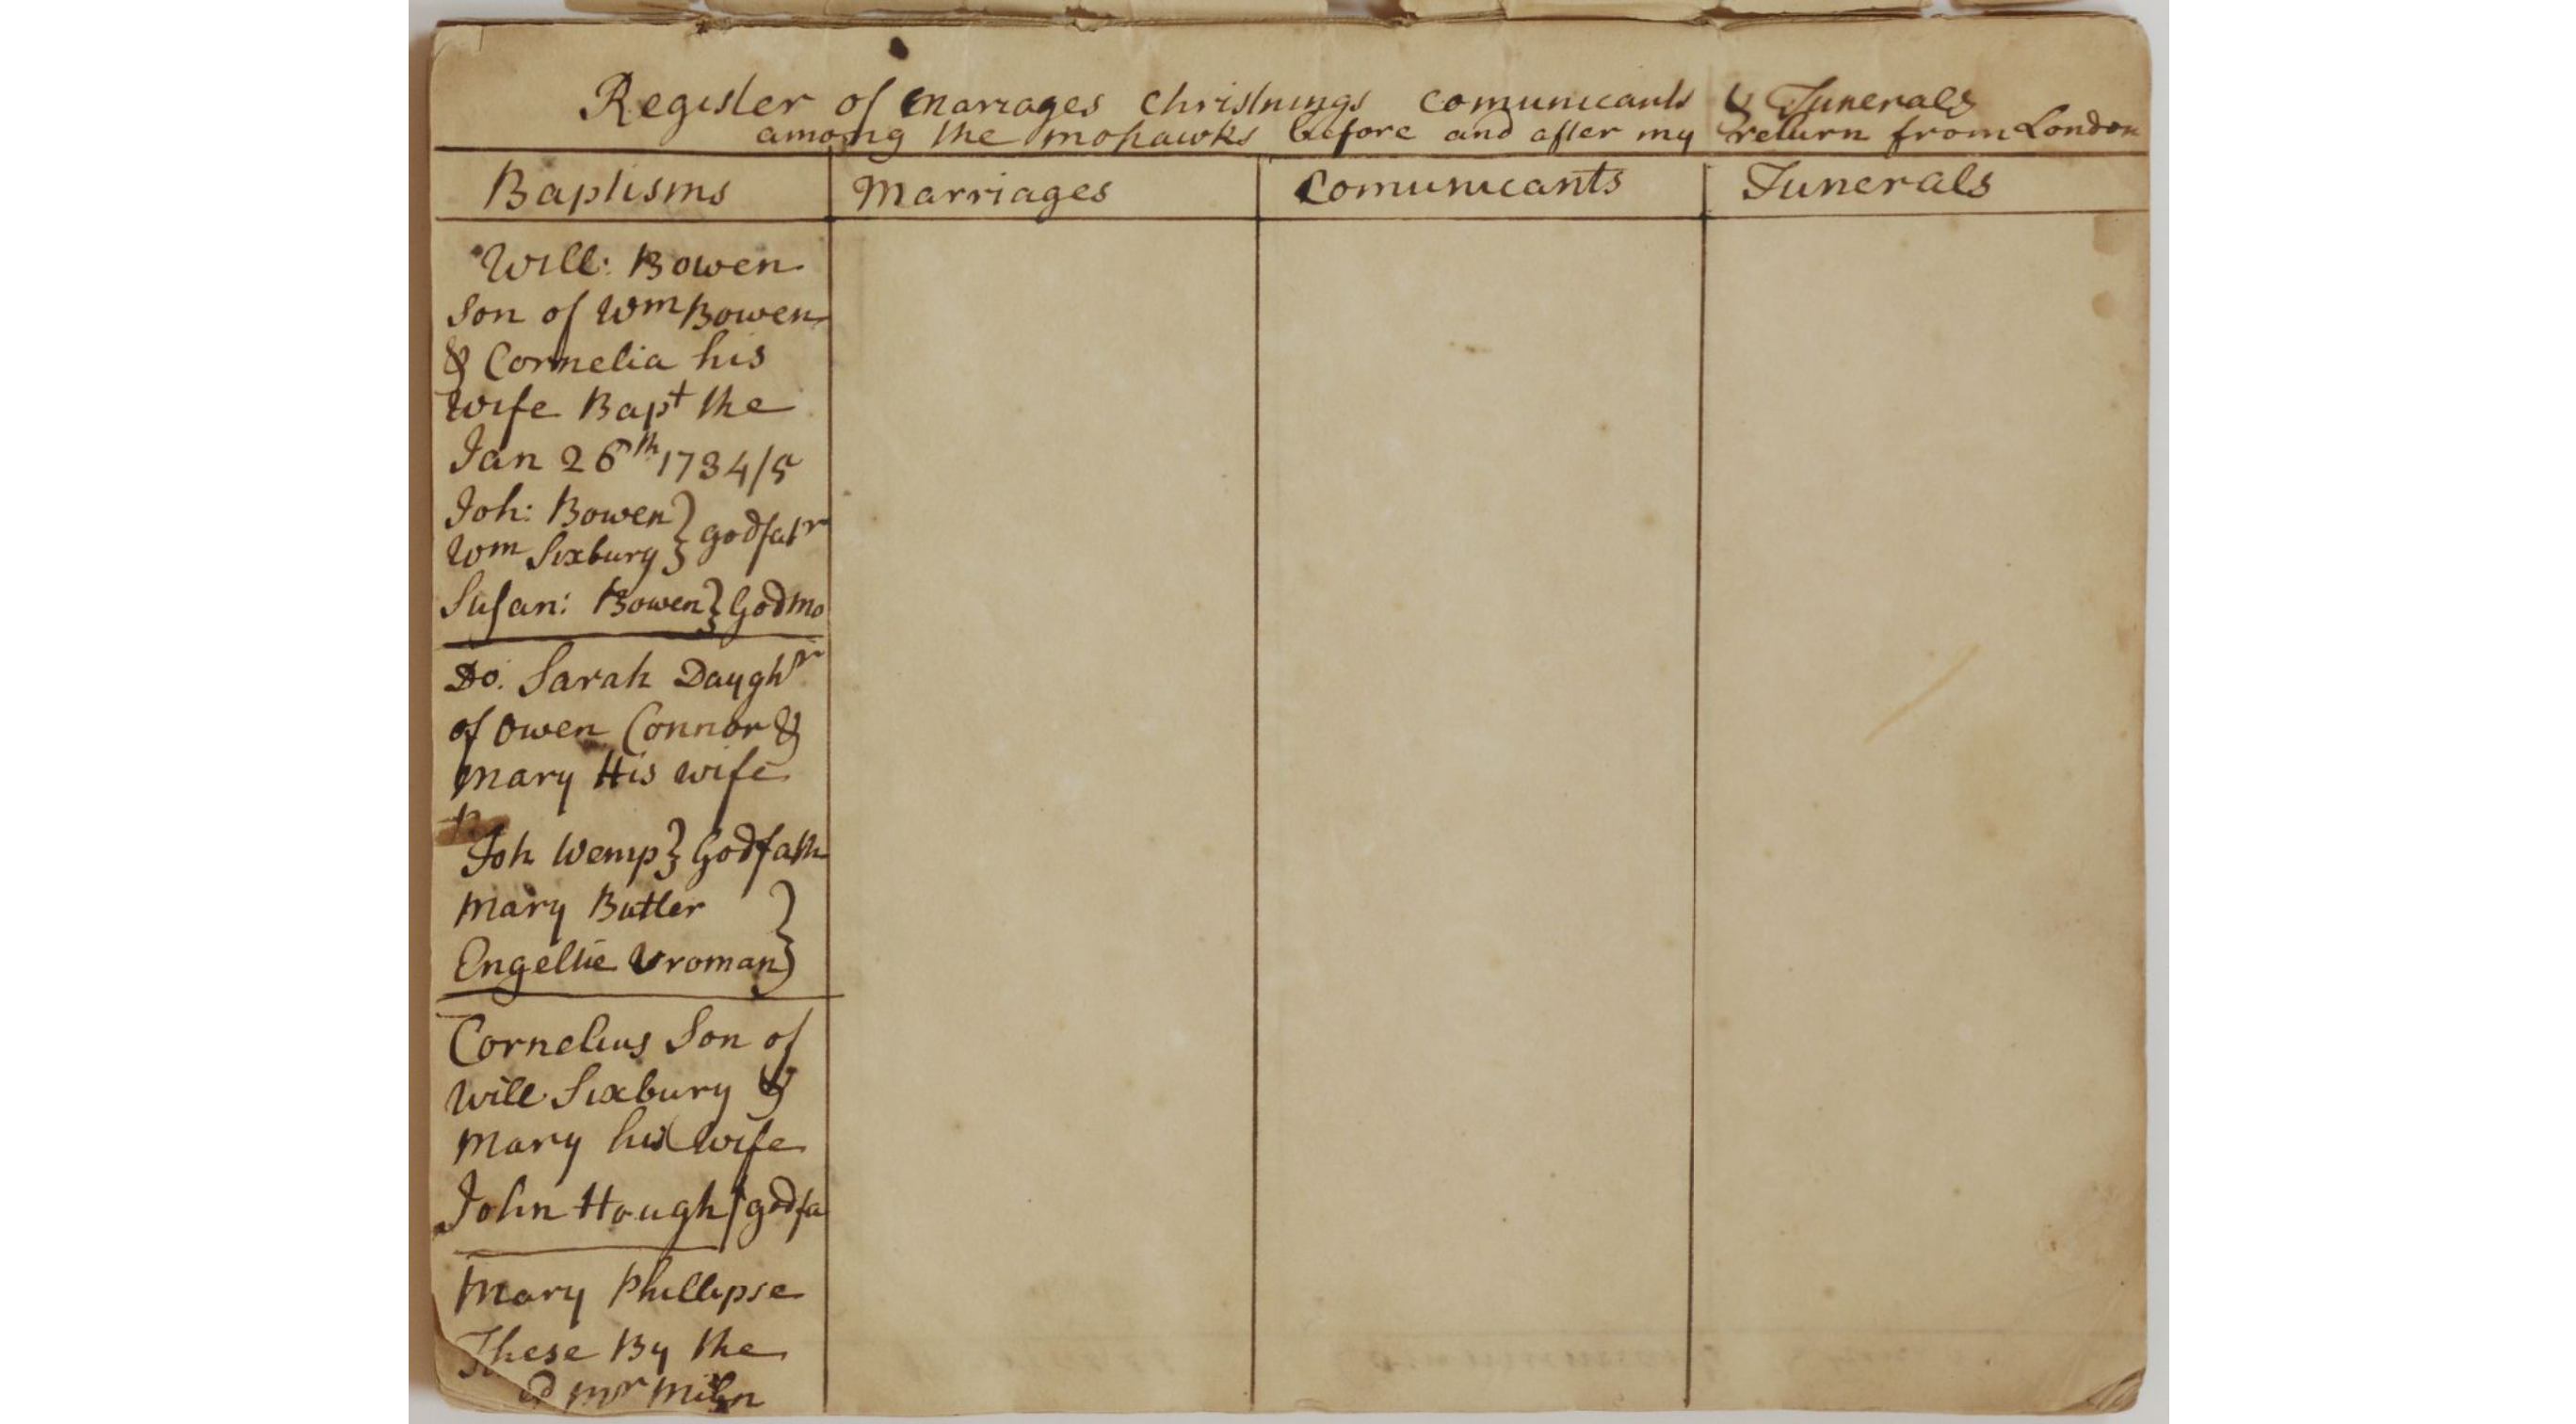 Register of Marrages Christnings Comunicants & Funerals
among the mohawks before and after my return from London
Baptisms Marriages Comunicants Funerals
Will: Bowen
Son of Wm Bowen
& Cornelia his
wife Bapt the
Jan 26th 1734/5
Joh: Bowen } godfatr
Wm Sixbury }
Susan: Bowen } Godmo
Do. Sarah Daughr
of Owen Connor &
Mary His wife
Joh Wemp } Godfath
Mary Butler }
Engeltie Vroman }
Cornelius Son of
Will Sixbury &
Mary his wife
John Hough / godfa
Mary Phillipse
These By the
Mr Miln